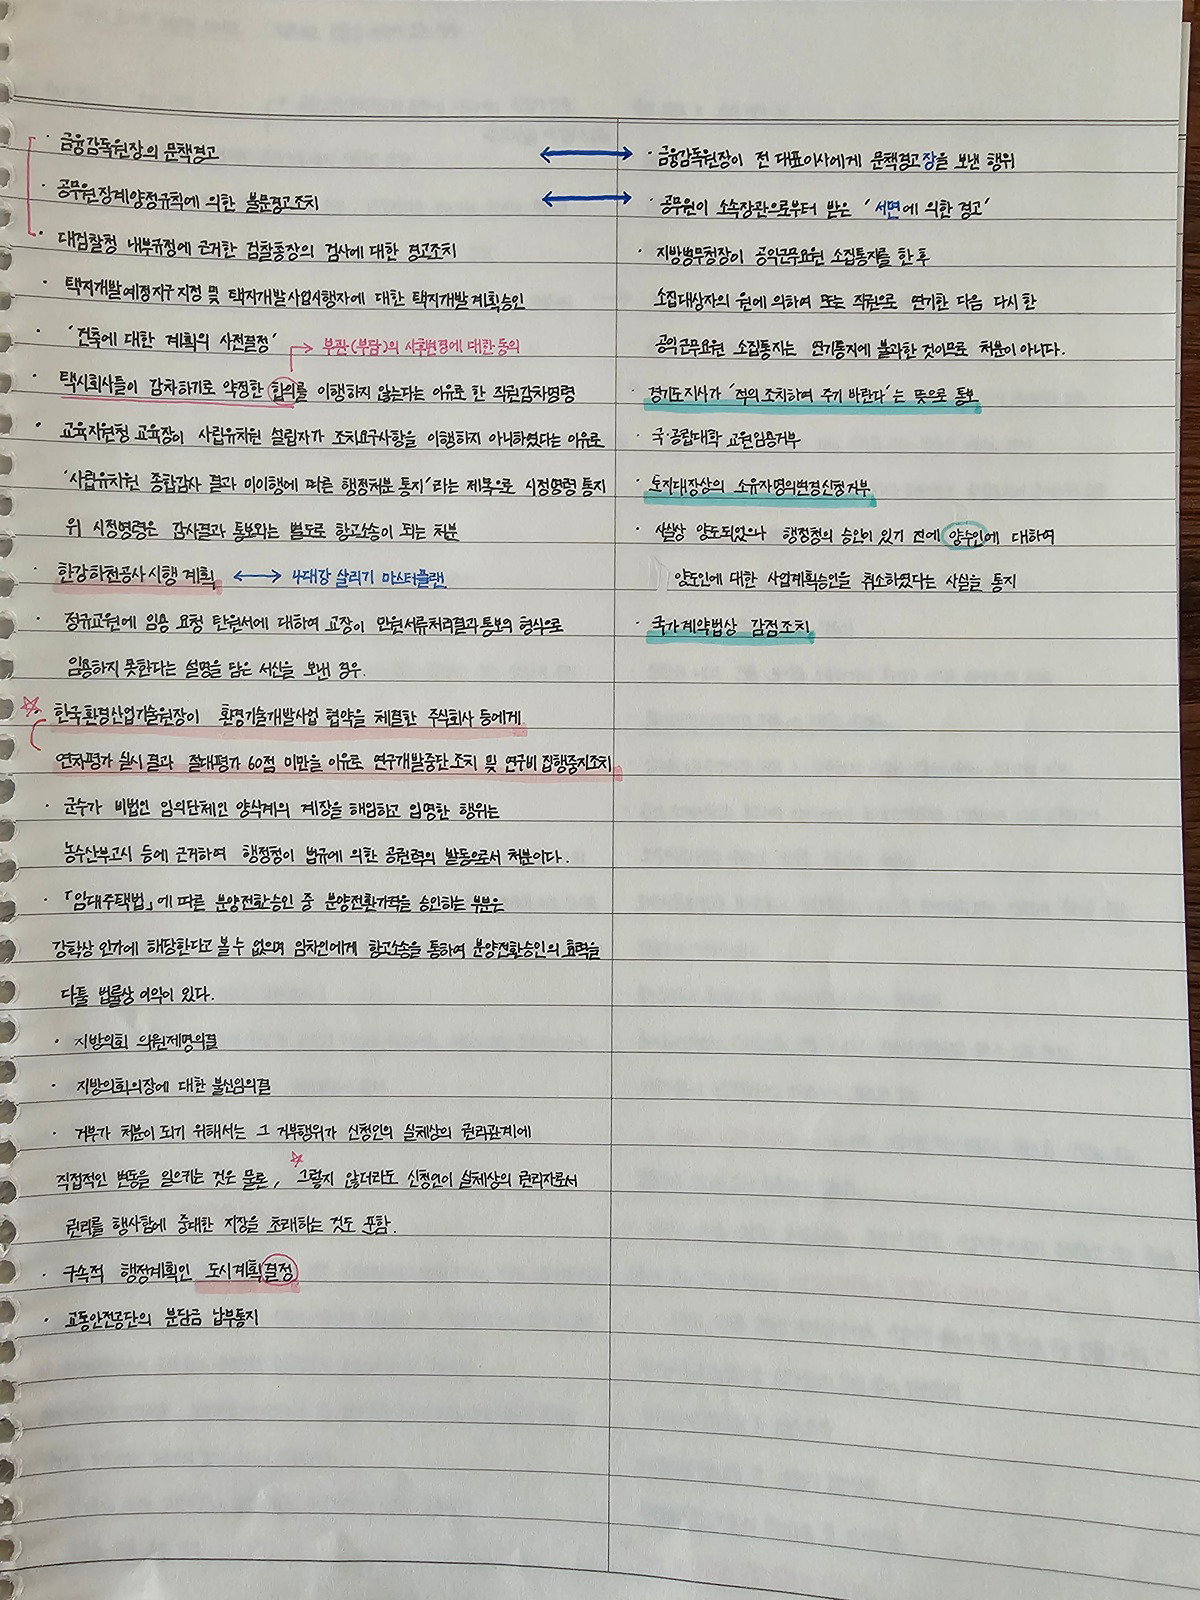 · 금융감독원장의 문책경고
· 공무원징계양정규칙에 의한 불문경고조치
· 대검찰청 내부규정에 근거한 검찰총장의 검사에 대한 경고조치
· 택지개발예정지구지정 및 택지개발사업시행자에 대한 택지개발계획승인
· '건축에 대한 계획의 사전결정'
→ 부관(부담)의 사후변경에 대한 동의
· 택시회사들이 감차하기로 약정한 합의를 이행하지 않는다는 이유로 한 직권감차명령
· 교육지원청 교육장이 사립유치원 설립자가 조치요구사항을 이행하지 아니하였다는 이유로
'사립유치원 종합감사 결과 미이행에 따른 행정처분 통지'라는 제목으로 시정명령 통지
위 시정명령은 감사결과 통보와는 별도로 항고소송이 되는 처분
· 한강하천공사시행계획 ↔ 4대강 살리기 마스터플랜
· 정규교원에 임용 요청 탄원서에 대하여 교장이 민원서류처리결과통보의 형식으로
임용하지 못한다는 설명을 담은 서신을 보낸 경우.
☆· 한국환경산업기술원장이 환경기술개발사업 협약을 체결한 주식회사 등에게
연차평가 실시 결과 절대평가 60점 미만을 이유로 연구개발중단조치 및 연구비 집행중지조치
· 군수가 비법인 임의단체인 양식계의 계장을 해임하고 임명한 행위는
농수산부고시 등에 근거하여 행정청이 법규에 의한 공권력의 발동으로서 처분이다.
· 「임대주택법」에 따른 분양전환승인 중 분양전환가격을 승인하는 부분은
강학상 인가에 해당한다고 볼 수 없으며 임차인에게 항고소송을 통하여 분양전환승인의 효력을
다툴 법률상 이익이 있다.
· 지방의회 의원제명의결
· 지방의회의장에 대한 불신임의결
· 거부가 처분이 되기 위해서는 그 거부행위가 신청인의 실체상의 권리관계에
직접적인 변동을 일으키는 것은 물론, ☆그렇지 않더라도 신청인이 실체상의 권리자로서
권리를 행사함에 중대한 지장을 초래하는 것도 포함.
· 구속적 행정계획인 도시계획결정
· 교통안전공단의 분담금 납부통지
↔ · 금융감독원장이 전 대표이사에게 문책경고장을 보낸 행위
↔ · 공무원이 소속장관으로부터 받은 '서면에 의한 경고'
· 지방병무청장이 공익근무요원 소집통지를 한 후
소집대상자의 원에 의하여 또는 직권으로 연기한 다음 다시 한
공익근무요원 소집통지는 연기통지에 불과한 것이므로 처분이 아니다.
· 경기도지사가 '적의 조치하여 주기 바란다'는 뜻으로 통보
· 국·공립대학 교원임용거부
· 토지대장상의 소유자명의변경신청거부
· 사실상 양도되었으나 행정청의 승인이 있기 전에 양수인에 대하여
양도인에 대한 사업계획승인을 취소하였다는 사실을 통지
· 국가계약법상 감점조치